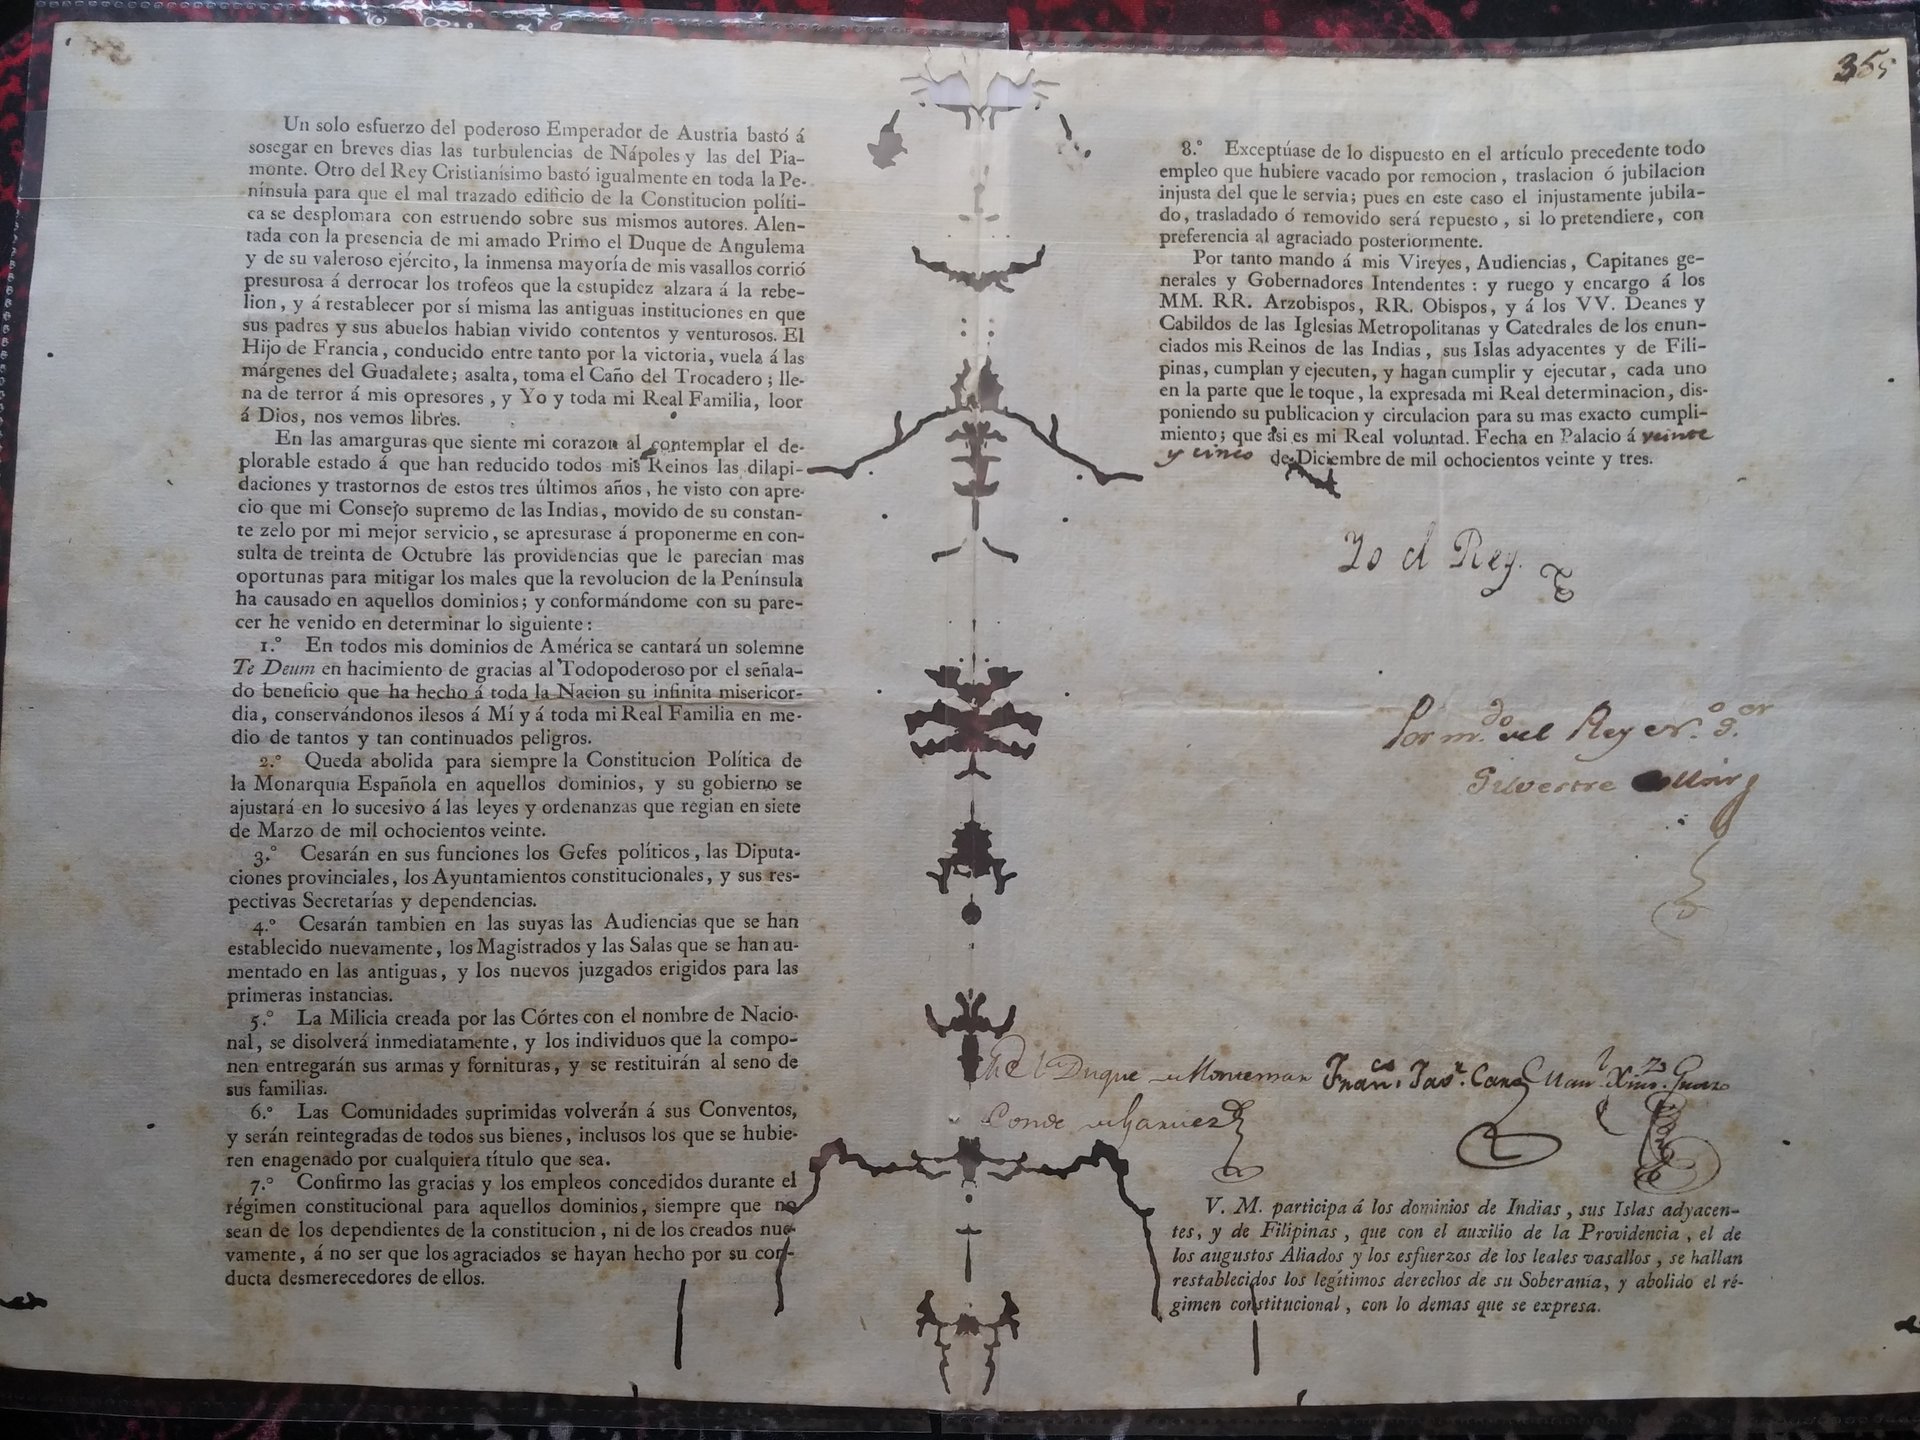 Un solo esfuerzo del poderoso Emperador de Austria bastó á
sosegar en breves dias las turbulencias de Nápoles y las del Pia-
monte. Otro del Rey Cristianísimo bastó igualmente en toda la Pe-
nínsula para que el mal trazado edificio de la Constitucion políti-
ca se desplomara con estruendo sobre sus mismos autores. Alen-
tada con la presencia de mi amado Primo el Duque de Angulema
y de su valeroso ejército, la inmensa mayoría de mis vasallos corrió
presurosa á derrocar los trofeos que la estupidez alzara á la rebe-
lion, y á restablecer por sí misma las antiguas instituciones en que
sus padres y sus abuelos habian vivido contentos y venturosos. El
Hijo de Francia, conducido entre tanto por la victoria, vuela á las
márgenes del Guadalete; asalta, toma el Caño del Trocadero; lle-
na de terror á mis opresores, y Yo y toda mi Real Familia, loor
á Dios, nos vemos libres.
En las amarguras que siente mi corazon al contemplar el de-
plorable estado á que han reducido todos mis Reinos las dilapi-
daciones y trastornos de estos tres últimos años, he visto con apre-
cio que mi Consejo supremo de las Indias, movido de su constan-
te zelo por mi mejor servicio, se apresurase á proponerme en con-
sulta de treinta de Octubre las providencias que le parecian mas
oportunas para mitigar los males que la revolucion de la Península
ha causado en aquellos dominios; y conformándome con su pare-
cer he venido en determinar lo siguiente:
1.º En todos mis dominios de América se cantará un solemne
Te Deum en hacimiento de gracias al Todopoderoso por el señala-
do beneficio que ha hecho á toda la Nacion su infinita misericor-
dia, conservándonos ilesos á Mí y á toda mi Real Familia en me-
dio de tantos y tan continuados peligros.
2.º Queda abolida para siempre la Constitucion Política de
la Monarquía Española en aquellos dominios, y su gobierno se
ajustará en lo sucesivo á las leyes y ordenanzas que regian en siete
de Marzo de mil ochocientos veinte.
3.º Cesarán en sus funciones los Gefes políticos, las Diputa-
ciones provinciales, los Ayuntamientos constitucionales, y sus res-
pectivas Secretarías y dependencias.
4.º Cesarán tambien en las suyas las Audiencias que se han
establecido nuevamente, los Magistrados y las Salas que se han au-
mentado en las antiguas, y los nuevos juzgados erigidos para las
primeras instancias.
5.º La Milicia creada por las Córtes con el nombre de Nacio-
nal, se disolverá inmediatamente, y los individuos que la compo-
nen entregarán sus armas y fornituras, y se restituirán al seno de
sus familias.
6.º Las Comunidades suprimidas volverán á sus Conventos,
y serán reintegradas de todos sus bienes, inclusos los que se hubie-
ren enagenado por cualquiera título que sea.
7.º Confirmo las gracias y los empleos concedidos durante el
régimen constitucional para aquellos dominios, siempre que no
sean de los dependientes de la constitucion, ni de los creados nue-
vamente, á no ser que los agraciados se hayan hecho por su con-
ducta desmerecedores de ellos.
365
8.º Exceptúase de lo dispuesto en el artículo precedente todo
empleo que hubiere vacado por remocion, traslacion ó jubilacion
injusta del que le servia; pues en este caso el injustamente jubila-
do, trasladado ó removido será repuesto, si lo pretendiere, con
preferencia al agraciado posteriormente.
Por tanto mando á mis Vireyes, Audiencias, Capitanes ge-
nerales y Gobernadores Intendentes: y ruego y encargo á los
MM. RR. Arzobispos, RR. Obispos, y á los VV. Deanes y
Cabildos de las Iglesias Metropolitanas y Catedrales de los enun-
ciados mis Reinos de las Indias, sus Islas adyacentes y de Fili-
pinas, cumplan y ejecuten, y hagan cumplir y ejecutar, cada uno
en la parte que le toque, la expresada mi Real determinacion, dis-
poniendo su publicacion y circulacion para su mas exacto cumpli-
miento; que asi es mi Real voluntad. Fecha en Palacio á veinte
y cinco de Diciembre de mil ochocientos veinte y tres.
Yo el Rey.
Por m.do del Rey N.º S.or
Silvestre
El Duque de Montemar Fran.co Jav.r
Conde de Garciez
V. M. participa á los dominios de Indias, sus Islas adyacen-
tes, y de Filipinas, que con el auxilio de la Providencia, el de
los augustos Aliados y los esfuerzos de los leales vasallos, se hallan
restablecidos los legítimos derechos de su Soberanía, y abolido el ré-
gimen constitucional, con lo demas que se expresa.